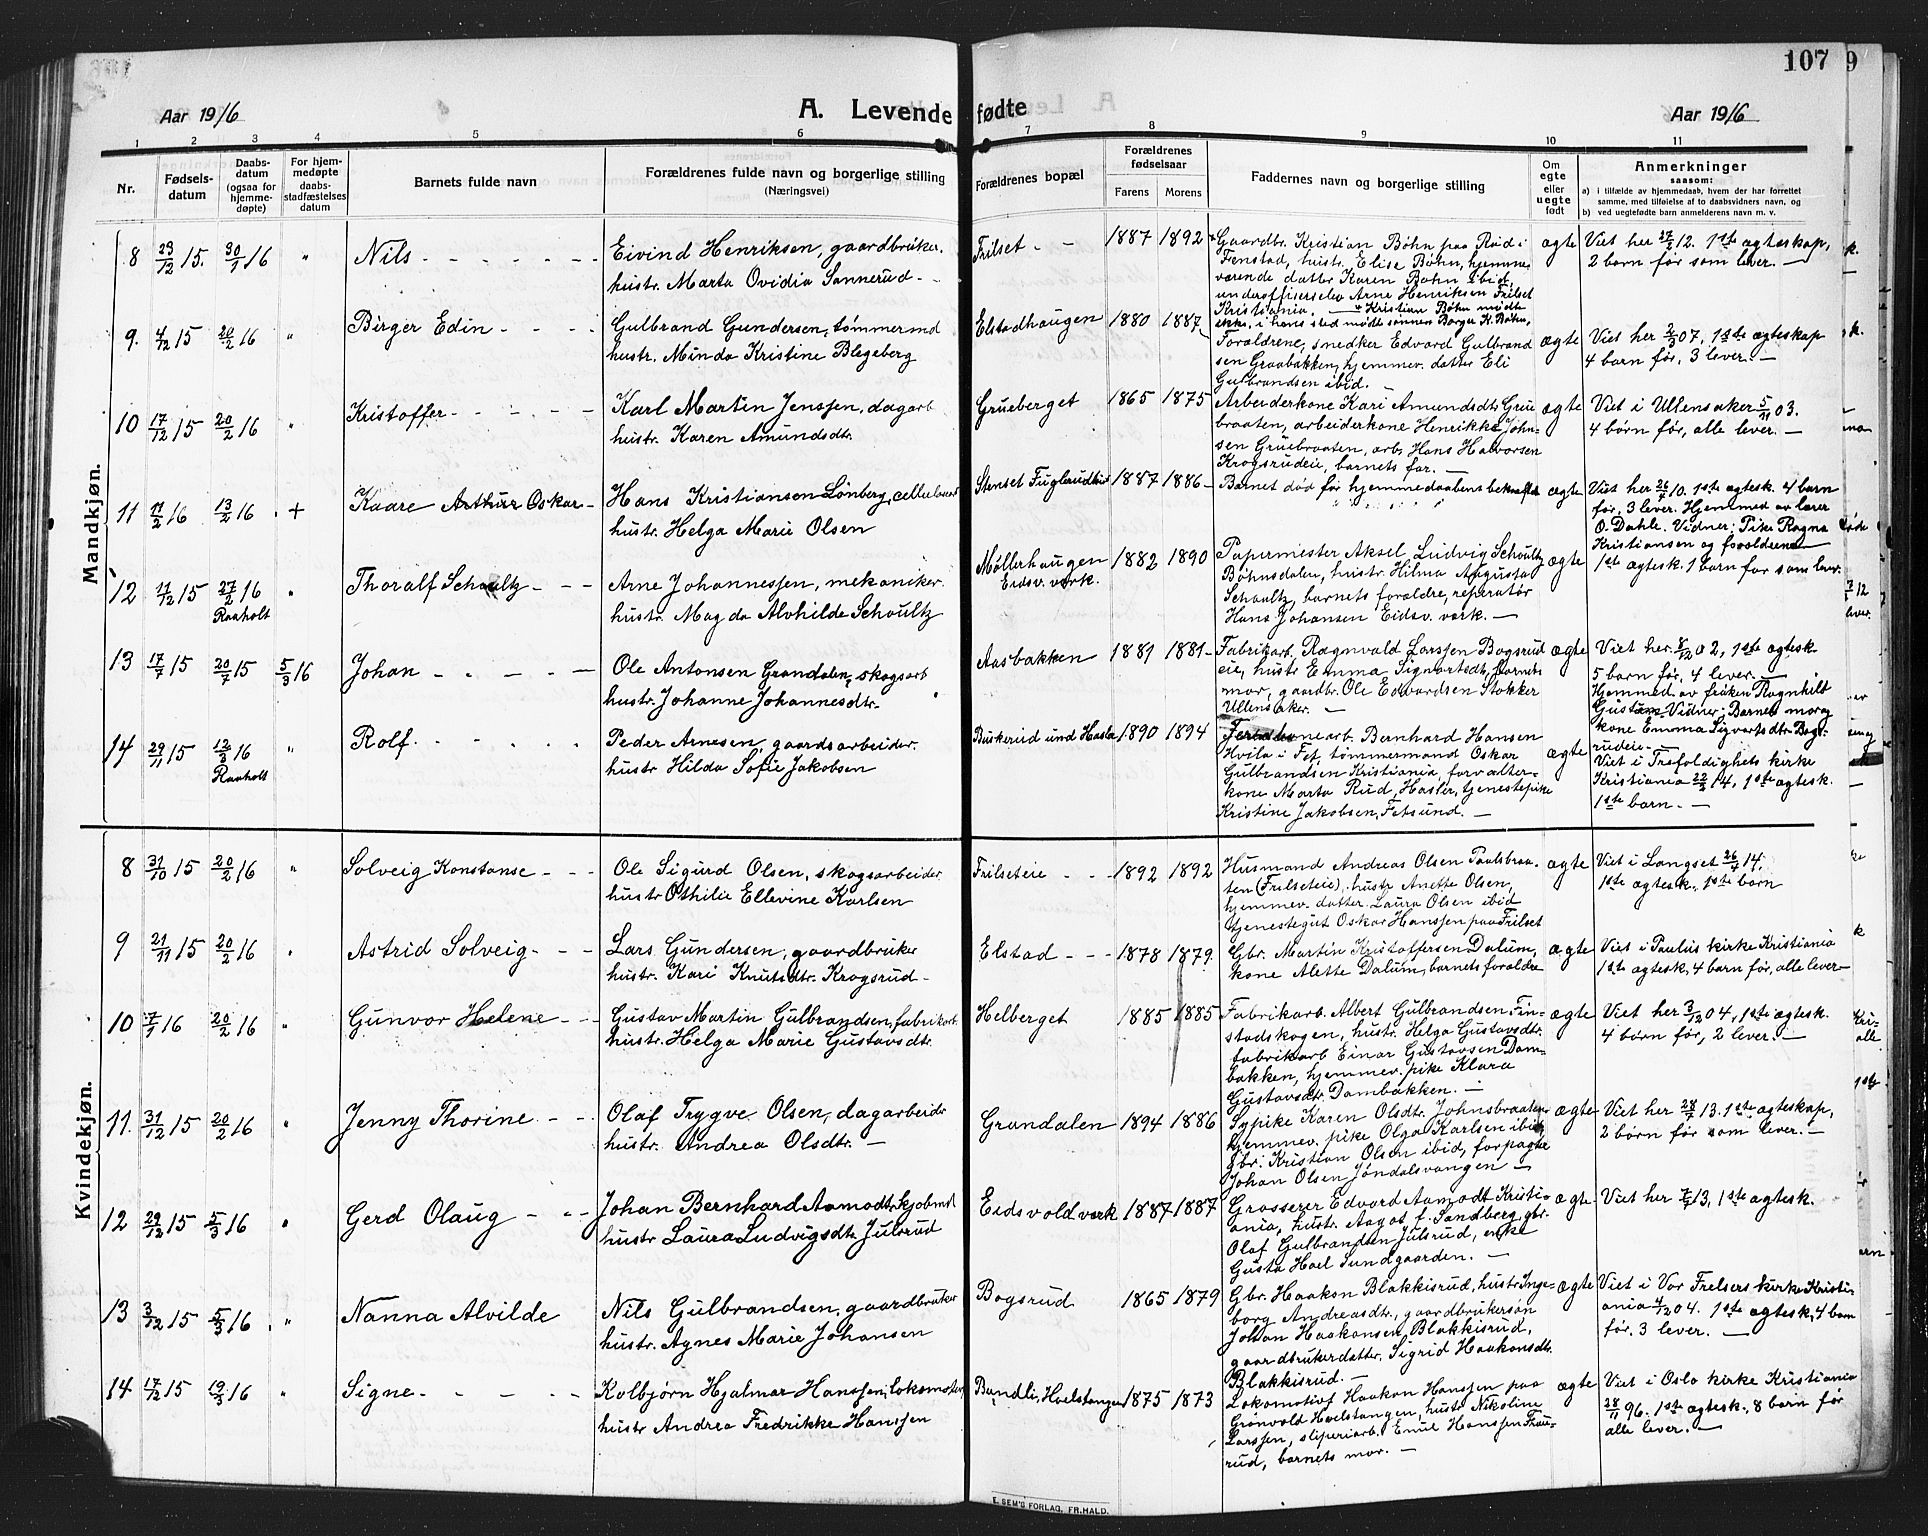 107
9
Aar 1916
A. Levende fødte
Aar 1916
1 2 3 4 5 6 7 8 9 10 11
Nr.
Fødsels-
datum
Daabs-
datum
(ogsaa for
hjemme-
døpte)
For hjem-
medøpte
daabs-
stadfæstelses
datum
Barnets fulde navn
Forældrenes fulde navn og borgerlige stilling
(Næringsvei)
Forældrenes bopæl
Forældrenes
fødselsaar
Farens
Morens
Faddernes navn og borgerlige stilling
Om
egte
eller
uegte
født
Anmerkninger
saasom:
a) i tilfælde av hjemmedaab, hvem der har forrettet
samme, med tilføielse af to daabsvidners navn, og
b) ved uegtefødte barn anmelderens navn m. v.
Mandkjøn.
8 29/12 15. 30/1 16 " Nils
Eivind Henriksen, gaardbruker.
hustr. Marta Ovidia Sannerud
Frilset
1887 1892
Gaardbr. Kristian Bøhn paa Rød i
Fenstad, hustr. Elise Bøhn, hjemme-
værende datter Karen Bøhn ibid,
underofficerselev Arne Henriksen Frilset
Kristiania. + Kristian Bøhn mødte
ikke, i hans sted mødte sønnen Borger K. Bøhn,
ægte
Viet her 27/2 12. 1ste ægteskap,
2 barn før som lever.
9. 4/12 15 20/2 16 " Birger Edin
Gulbrand Gundersen, tømmermd
hustr. Minda Kristine Blegeberg
Elstadhaugen
1880 1887
Forældrene, snedker Edvard Gulbrand
sen Graabakken, hjemmev. datter Eli
Gulbrandsen ibid.
ægte
Viet her 2/3 07, 1ste ægteskap
4 barn før, 3 lever.
10 17/12 15 20/2 16 " Kristoffer
Karl Martin Jenssen, dagarb
hustr. Karen Amundsdtr.
Grueberget
1865 1875
Arbeiderkone Kari Amundsdtr Grue
braaten, arbeiderkone Henrikke John-
sen Gruebraaten, arb. Hans Halvorsen
Krogsrudeie, barnets far.
ægte
Viet i Ullensaker 5/11 03.
4 børn før, alle lever.
11 11/2 16 13/2 16 + Kaare Arthur Oskar
Hans Kristiansen Lønberg, cellulosearb
hustr. Helga Marie Olsen
Stenset Fuglerudhus
1887 1886
Barnet død før hjemmedaabens bekræftelse
ægte
Viet her 26/7 10. 1ste ægtesk. 4 barn
før, 3 lever. Hjemmed av lærer
O. Dahle. Vidner: Pike Ragna
Kristiansen og forældrene
12 17/12 15 27/2 16 " Thoralf Schoultz
Raaholt
Arne Johannessen, mekaniker.
hustr. Magda Alvhilde Schoultz
Møllerhaugen
Eidsv. verk.
1882 1890
Papermester Aksel Ludvig Schoultz
Bøhnsdalen, hustr. Hilma Augusta
Schoultz, barnets forældre, reparatør
Hans Johansen Eidsv. verk.
ægte
1ste ægtesk. 1 barn før som lever.
13 17/7 15 20/7 15 5/3 16 Johan
Ole Antonsen Grandalen, skogsarb
hustr. Johanne Johannesdtr.
Aasbakken
1881 1881
Fabrikarb. Ragnvald Larssen Bogsrud
eie, hustr Emma Sigvartsdtr, barnets
mor, gaardbr. Ole Edvardsen Stokker
Ullensaker.
ægte
Viet her 8/12 02, 1ste ægtesk
5 barn før, 4 lever.
Hjemmed. av frøken Ragnhild
Gustam. Vidner: Barnets mor og
kone Emma Sigvartsdtr. Bogs-
rudeie.
14 29/11 15 12/3 16 " Rolf
Raaholt
Peder Arnesen, gaardsarbeider.
hustr Hilda Sofie Jakobsen
Buskerud und Hasler
1890 1894
arb. Bernhard Hansen
Hvila i Fet, tømmermand Oskar
Gulbrandsen Kristiania, forvalter-
kone Marta Rud, Hasler, tjenestepike
Kristine Jakobsen, Fetsund.
ægte
Viet i Trefoldighets kirke
Kristiania 22/2 14, 1ste ægtesk.
1ste barn.
Kvindekjøn.
8 31/10 15 20/2 16 " Solveig Konstanse
Ole Sigurd Olsen, skogsarbeider
hustr Othilie Ellevine Karlsen
Frilseteie
1892 1892
Husmand Andreas Olsen Paulsbraa-
ten (Frilseteie), hustr Anette Olsen,
hjemmev. datter Laura Olsen ibid
tjenestegut Oskar Hanssen paa Frilset
ægte
Viet i Langset 26/4 14.
1ste ægtesk. 1ste barn
9 21/11 15 20/2 16 " Astrid Solveig
Lars Gundersen, gaardbruker
hustr. Kari Knutsdtr. Krogsrud
Elstad
1878 1879
Gbr. Martin Kristoffersen Dalum,
kone Alette Dalum, barnets forældre
ægte
Viet i Paulus kirke Kristiania
1ste ægtesk, 4 barn før, alle lever
10 7/1 16 20/2 16 " Gunvor Helene
Gustav Martin Gulbrandsen, fabrikarb.
hustr. Helga Marie Gustavsdtr.
Helberget
1885 1885
Fabrikarb. Albert Gulbrandsen Fin-
stadskogen, hustr. Helga Gustavsdtr.
fabrikarb Einar Gustavsen Dam-
bakken, hjemmev. pike Klara
Gustavsdtr. Dambakken.
ægte
Viet her 3/12 04, 1ste ægtesk.
4 børn før, 2 lever.
11. 31/12 15 20/2 16 " Jenny Thorine
Olaf Trygve Olsen, dagarbeider
hustr. Andrea Olsdtr.
Grandalen
1894 1886
Sypike Karen Olsdtr. Johnsbraaten
hjemmev. pike Olga Karlsen ibid,
gbr. Kristian Olsen ibid, forpagter
Johan Olsen Jøndalsvangen
ægte
Viet her 28/7 13. 1ste ægteskap,
2 børn før som lever.
12 29/12 15 5/3 16 " Gerd Olaug
Johan Bernhard Aamodt, kjøbmd
hustr Laura Ludvigsdtr Julsrud
Eidsvold verk
1887 1887
Grosserer Edvard Aamodt Kristi-
ania, hustr. Aagot f. Sandberg, gbr.
Olaf Gulbrandsen Julsrud, enke
Gusta Hoel Sundgaarden.
ægte
Viet her 7/5 13, 1ste ægtesk.
13 3/12 15 5/3 16 " Nanna Alvilde
Nils Gulbrandsen, gaardbruker
hustr. Agnes Marie Johansen
Bogsrud
1865 1879
Gbr. Haakon Blakkisrud, hustr Inge-
borg Andreasdtr, gaardbrukersøn
Johan Haakonsen, Blakkisrud,
gaardbrukerdatter, Sigrid Haakonsdtr.
Blakkisrud.
ægte
Viet i Vor Frelsers kirke Kristi-
ania 4/2 04. 1ste ægtesk, 4 barn
før. 3 lever.
14 17/12 15 19/3 16 " Signe
Kolbjørn Hjalmar Hanssen, lokomotivf
hustr Andrea Fredrikke Hanssen
Bundli, Hoelstangen
1875 1873
Lokomotivf Haakon Hanssen paa
Grønvold Hoelstangen, hustr Nikoline
Larssen, sliperiarb. Emil Hanssen Trau-
rud, barnets mor.
ægte
Viet i Oslo kirke Kristiania
28/11 96. 1ste ægtesk., 8 barn før
alle lever.
E. SEM'S FORLAG, FR.HALD.